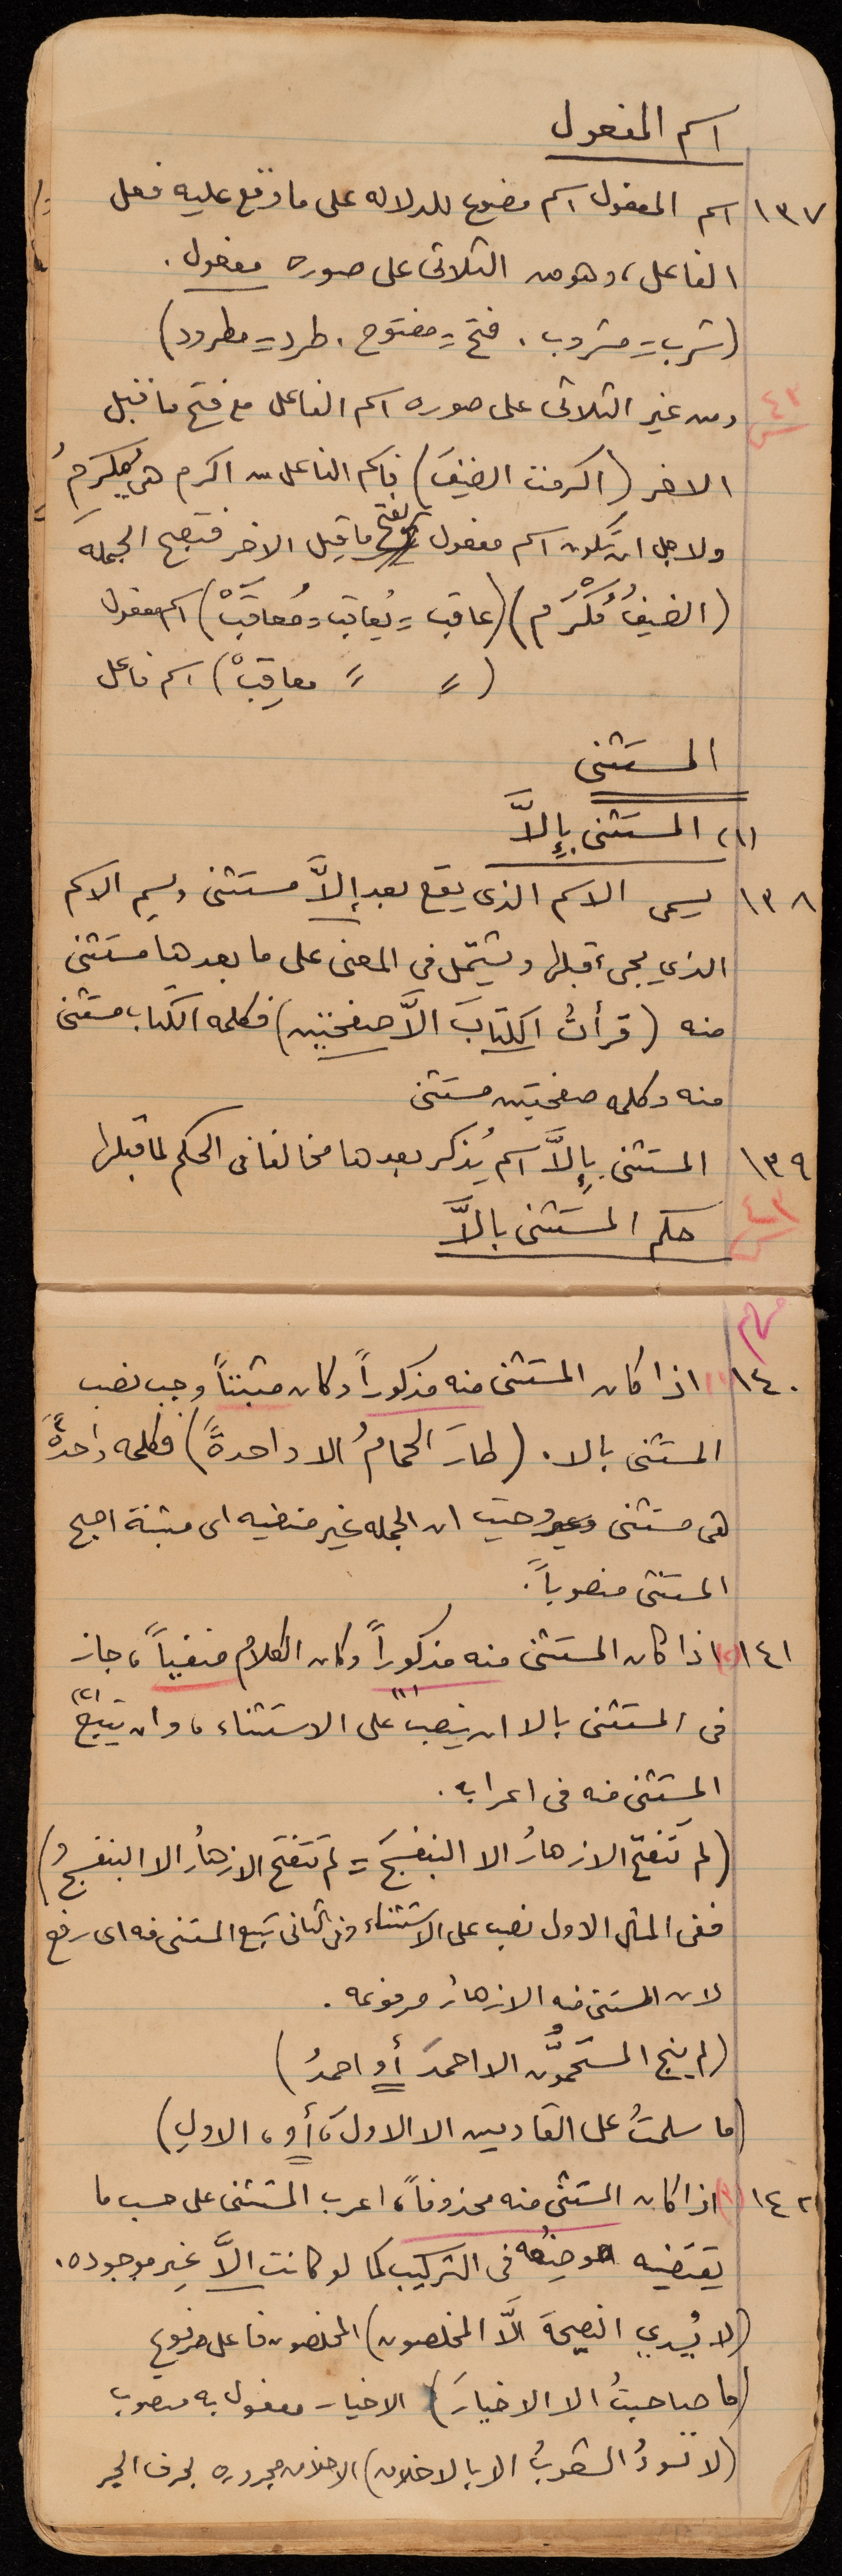 اسم المفعول
١٣٧ اسم المفعول اسم مصوغ للدلاله على ما وقع عليه فعل
الفاعل، وهو من الثلاثى على صوره مفعول.
(شرب = مشروب. فتح = مفتوح. طرد = مطرود)
٤٣ س
ومن غير الثلاثى على صوره اسم الفاعل مع فتح ما قبل
الاخر (اكرمت الضيفَ) فاسم الفاعل من اكرم هى مُكرِمُ
ولاجل ان تكون اسم مفعول يفتح ما قبل الاخر فتصبح الجمله
(الضيفُ مُكْرَم) (عاقب = يُعاقب = مُعاقَبْ) اسم مفعول
( " " معاقِبْ) اسم فاعل
المستثنى
(١) المستثنى بإِلاَّ
١٣٨ يسمى الاسم الذى يقع بعد إلاَّ مستثنى ويسم الاسم
الذي يجىء قبلها ويشتمل فى المعنى على ما بعدها مستثنى
منه (قرأتُ الكتابَ الاَّ صفحتين) فكلمه الكتاب مستثنى
منه وكلمه صفحتين مستثنى
١٣٩ المستثنى بإِلاَّ اسم يُذكر بعدها مخالفا فى الحكم لما قبلها
٤٣ س
حكم المستثنى بالاَّ
١٤٠ (١) اذا كان المستثنى منه مذكوراً وكان مثبتاً وجب نصب
المستثنى بالا. (طارَ الحمامُ الا واحدةً) فكلمه واحدةً
هى مستثنى وحيث ان الجمله غير منفيه اى مثبتة اصبح
المستثنى منصوباً.
١٤١ (٢) اذا كان المستثنى منه مذكوراً وكان الكلام منفياً، جاز
فى المستثنى بالا ان ينصب (١) على الاستثناء، وان يتبع (٢)
المستثنى منه فى اعرابه.
(لم تَتفتح الازهارُ الا البنفسجَ = لم تتفتح الازهارُ الا البنفسجُ)
ففى المثل الاول نصب على الاستثناء وفى الثانى تبع المستثنى منه اى رفع
لان المستثنى منه الازهار مرفوعه.
(لم ينج المستحمُّون الا احمدَ أو احمدُ)
(ما سلمتُ على القادمين الا الاولَ، أو، الاولِ)
١٤٢ (٣) اذا كان المستثنى منه محذوفاً، اعرب المستثنى على حسب ما
يقتضيه موضعه فى التركيب كما لو كانت الاَّ غير موجوده.
(لا يُسدي النصيحةَ الَّا المخلصون) المخلصون فاعل مرفوع
(ما صاحبتُ الا الاخيارَ) الاخيار مفعول به منصوب
(لا تسودُ الشعوبُ الا بالاخلاق) الاخلاق مجروره بحرف الجر